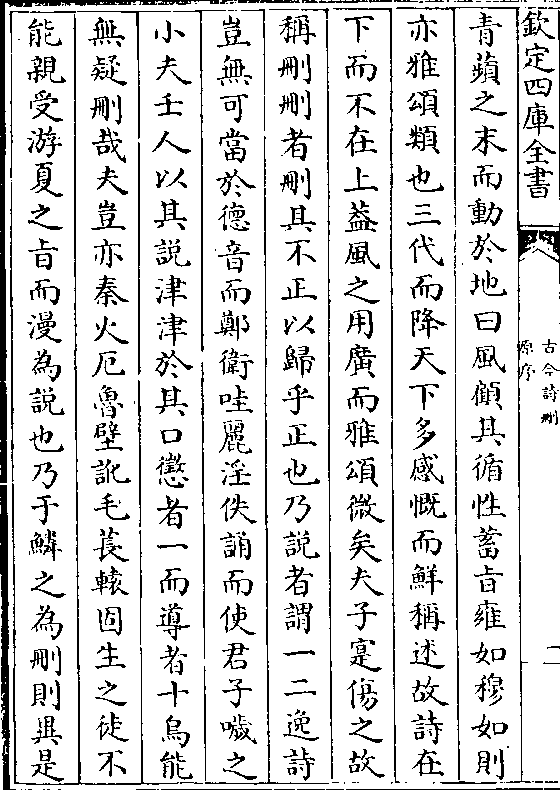 欽定四庫全書
古今詩刪
原序
二
青蘋之末而動於地曰風顧其循性蓄㫖雍如穆如則
亦雅頌類也三代而降天下多感慨而鮮稱述故詩在
下而不在上葢風之用廣而雅頌微矣夫子寔傷之故
稱刪刪者刪其不正以歸乎正也乃説者謂一二逸詩
豈無可當於德音而鄭衛哇麗淫佚誦而使君子噦之
小夫壬人以其説津津於其口懲者一而導者十烏能
無疑刪哉夫豈亦秦火厄魯壁訛毛萇轅固生之徒不
能親受游夏之㫖而漫為説也乃于鱗之為刪則異是